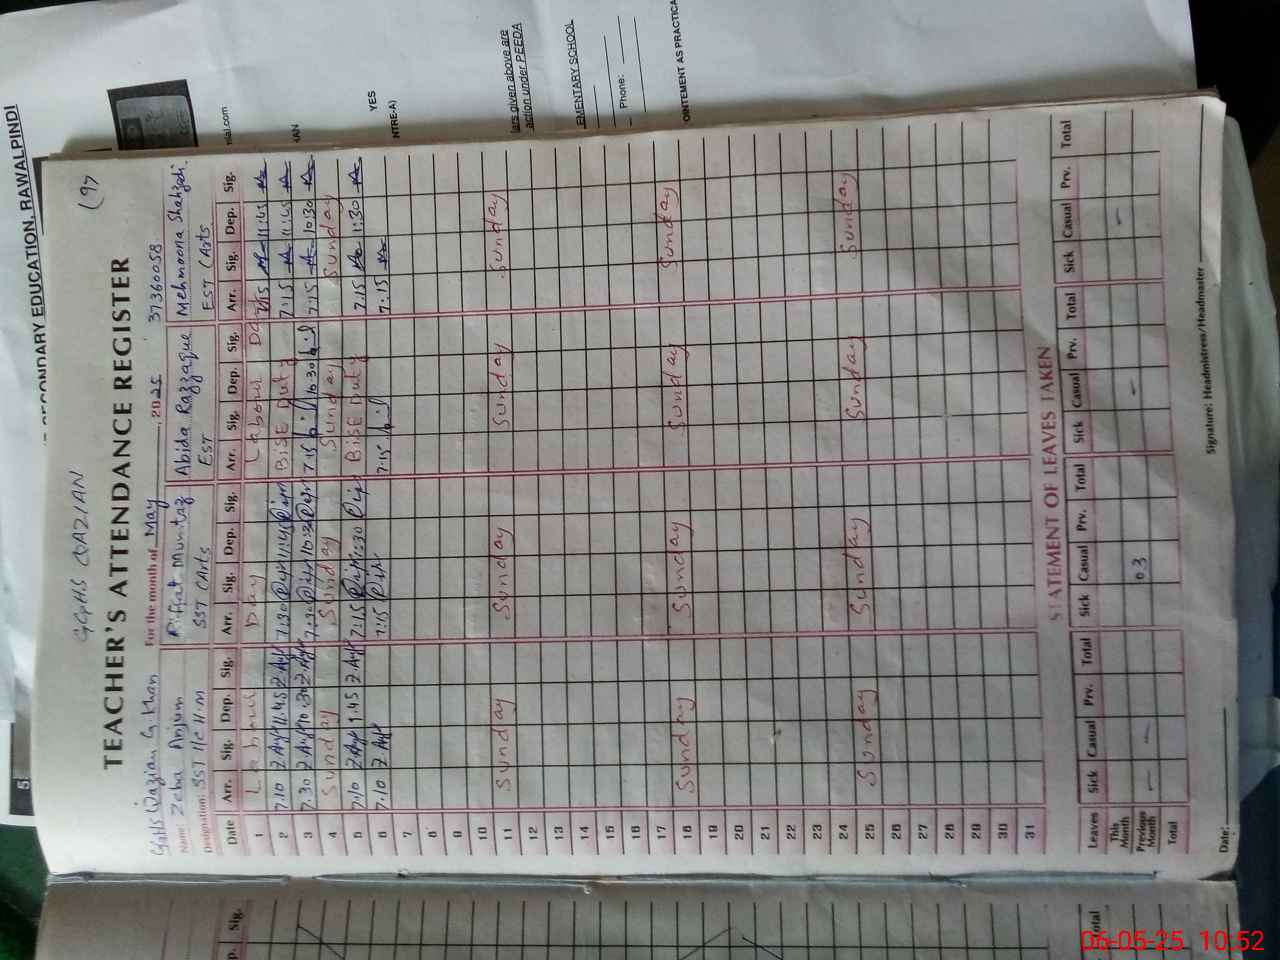 GGHS QAZIAN
(9)
TEACHER'S ATTENDANCE REGISTER
GGHS Qazian G. Khan For the month of May, 2025 37360058
Name: Zeba Anjum Riffat Mumtaz Abida Razzaque Mehmoona Shahzadi
Designation: SST I/C H.M SST (Arts EST EST (Arts
Date Arr. Sig. Dep. Sig. Arr. Sig. Dep. Sig. Arr. Sig. Dep. Sig. Arr. Sig. Dep. Sig.
1 Labour Day Labour Day 7:15 11:45
2 7.10 11.45 7:30 11:45 BISE Duty 7:15 11:45
3 7.30 10.30 7:30 10:30 7:15 10:30 7:15 10:30
4 Sunday Sunday Sunday Sunday
5 7.10 1.45 7:15 1:30 BISE Duty 7:15 1:30
6 7.10 7:15 7:15 7:15
7
8
9
10
11 Sunday Sunday Sunday Sunday
12
13
14
15
16
17
18 Sunday Sunday Sunday Sunday
19
20
21
22
23
24
25 Sunday Sunday Sunday Sunday
26
27
28
29
30
31
STATEMENT OF LEAVES TAKEN
Leaves Sick Casual Prv. Total Sick Casual Prv. Total Sick Casual Prv. Total Sick Casual Prv. Total
This Month
Previous Month — — 03 — —
Total
Date: Signature: Headmistress/Headmaster
SECONDARY EDUCATION, RAWALPINDI
5.
YES
NTRE-A)
lars given above are
action under PEEDA
EMENTARY SCHOOL
Phone:
OINTEMENT AS PRACTICA
Sig.
otal
06-05-25 10:52